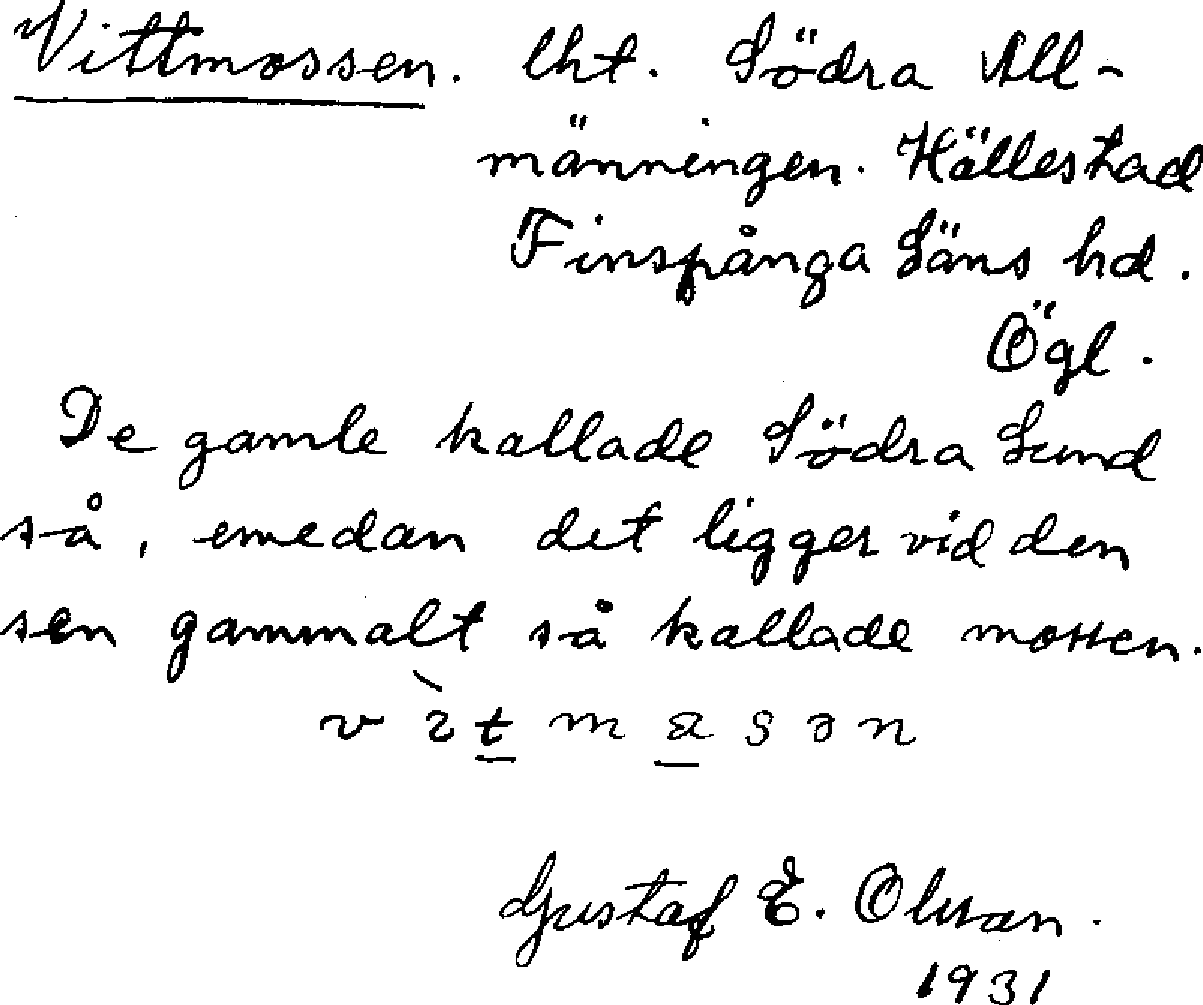 Vittmossen. lht. Södra All-
männingen. Hällestad
Finspånga Läns hd.
Ögl.
De gamle kallade Södra Lund
så, emedan det ligger vid den
sen gammalt så kallade mossen.
Gustaf E. Olsson.
1931